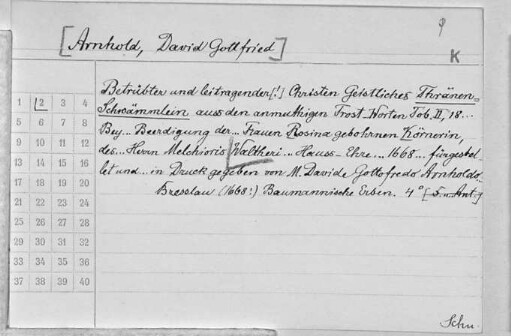 9
[Arnhold, David Gottfried]
K
Betrübter und leitragender [!] Christen Geistliches Thränen-
Schwämmlein aus den anmuthigen Trost-Worten Tob. II, 18...
Bey... Beerdigung der... Frauen Rosina gebohrnen Körnerin,
des... Herrn Melchioris Waltheri... Hauss-Ehre... 1668... fürgestel-
let und... in Druck gegeben von M. Davide Gottofredo Arnholdo.
Bresslau (1668:) Baumannische Erben. 4° [5. u. Ant.]
1 2 3 4
5 6 7 8
9 10 11 12
13 14 15 16
17 18 19 20
21 22 23 24
25 26 27 28
29 30 31 32
33 34 35 36
37 38 39 40
Schu.